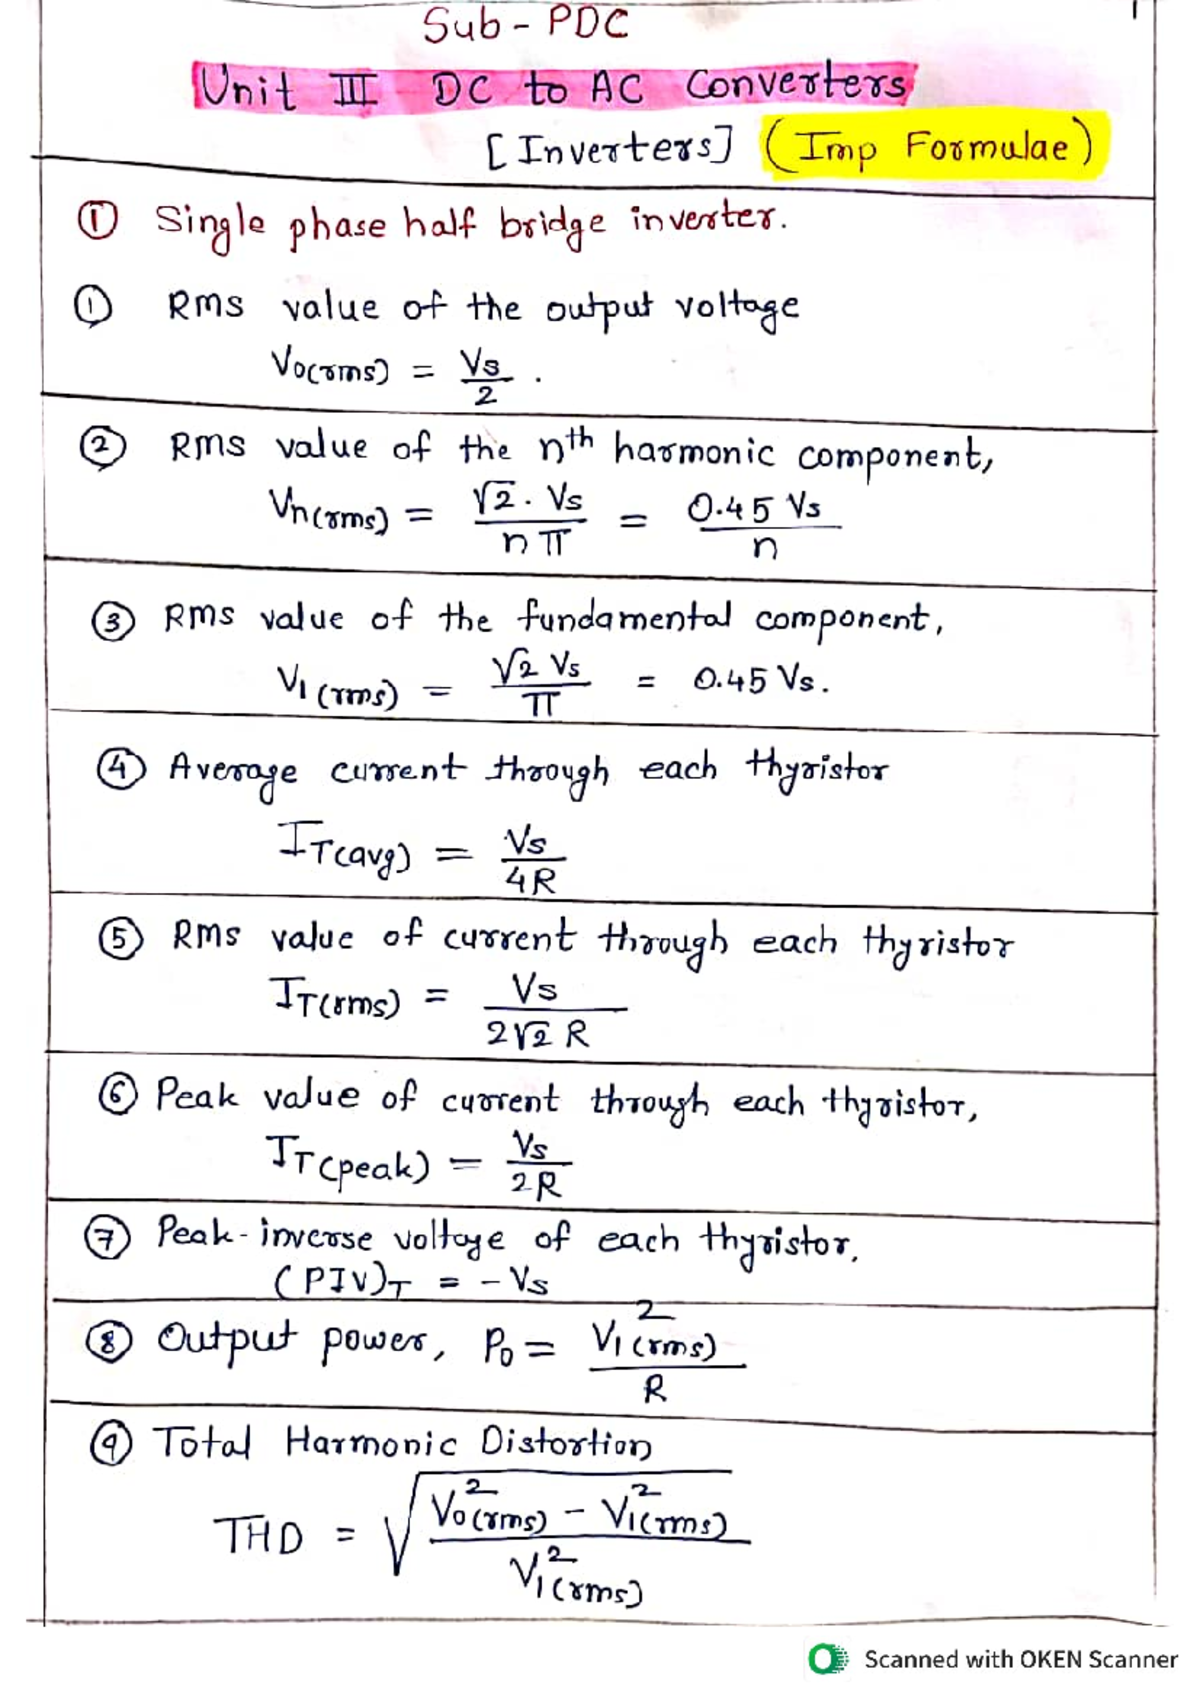 1
Sub - PDC
Unit III DC to AC Converters
[Inverters] (Imp Formulae)
① Single phase half bridge inverter.
① Rms value of the output voltage
Vo(rms) = Vs/2 .
② Rms value of the nth harmonic component,
Vn(rms) = √2 . Vs / n π = 0.45 Vs / n
③ Rms value of the fundamental component,
V1(rms) = √2 Vs / π = 0.45 Vs.
④ Average current through each thyristor
IT(avg) = Vs / 4R
⑤ Rms value of current through each thyristor
IT(rms) = Vs / 2√2 R
⑥ Peak value of current through each thyristor,
IT(peak) = Vs / 2R
⑦ Peak-inverse voltage of each thyristor.
(PIV)T = - Vs
⑧ Output power, Po = V1²(rms) / R
⑨ Total Harmonic Distortion
THD = √((Vo²(rms) - V1²(rms)) / V1²(rms))
Scanned with OKEN Scanner